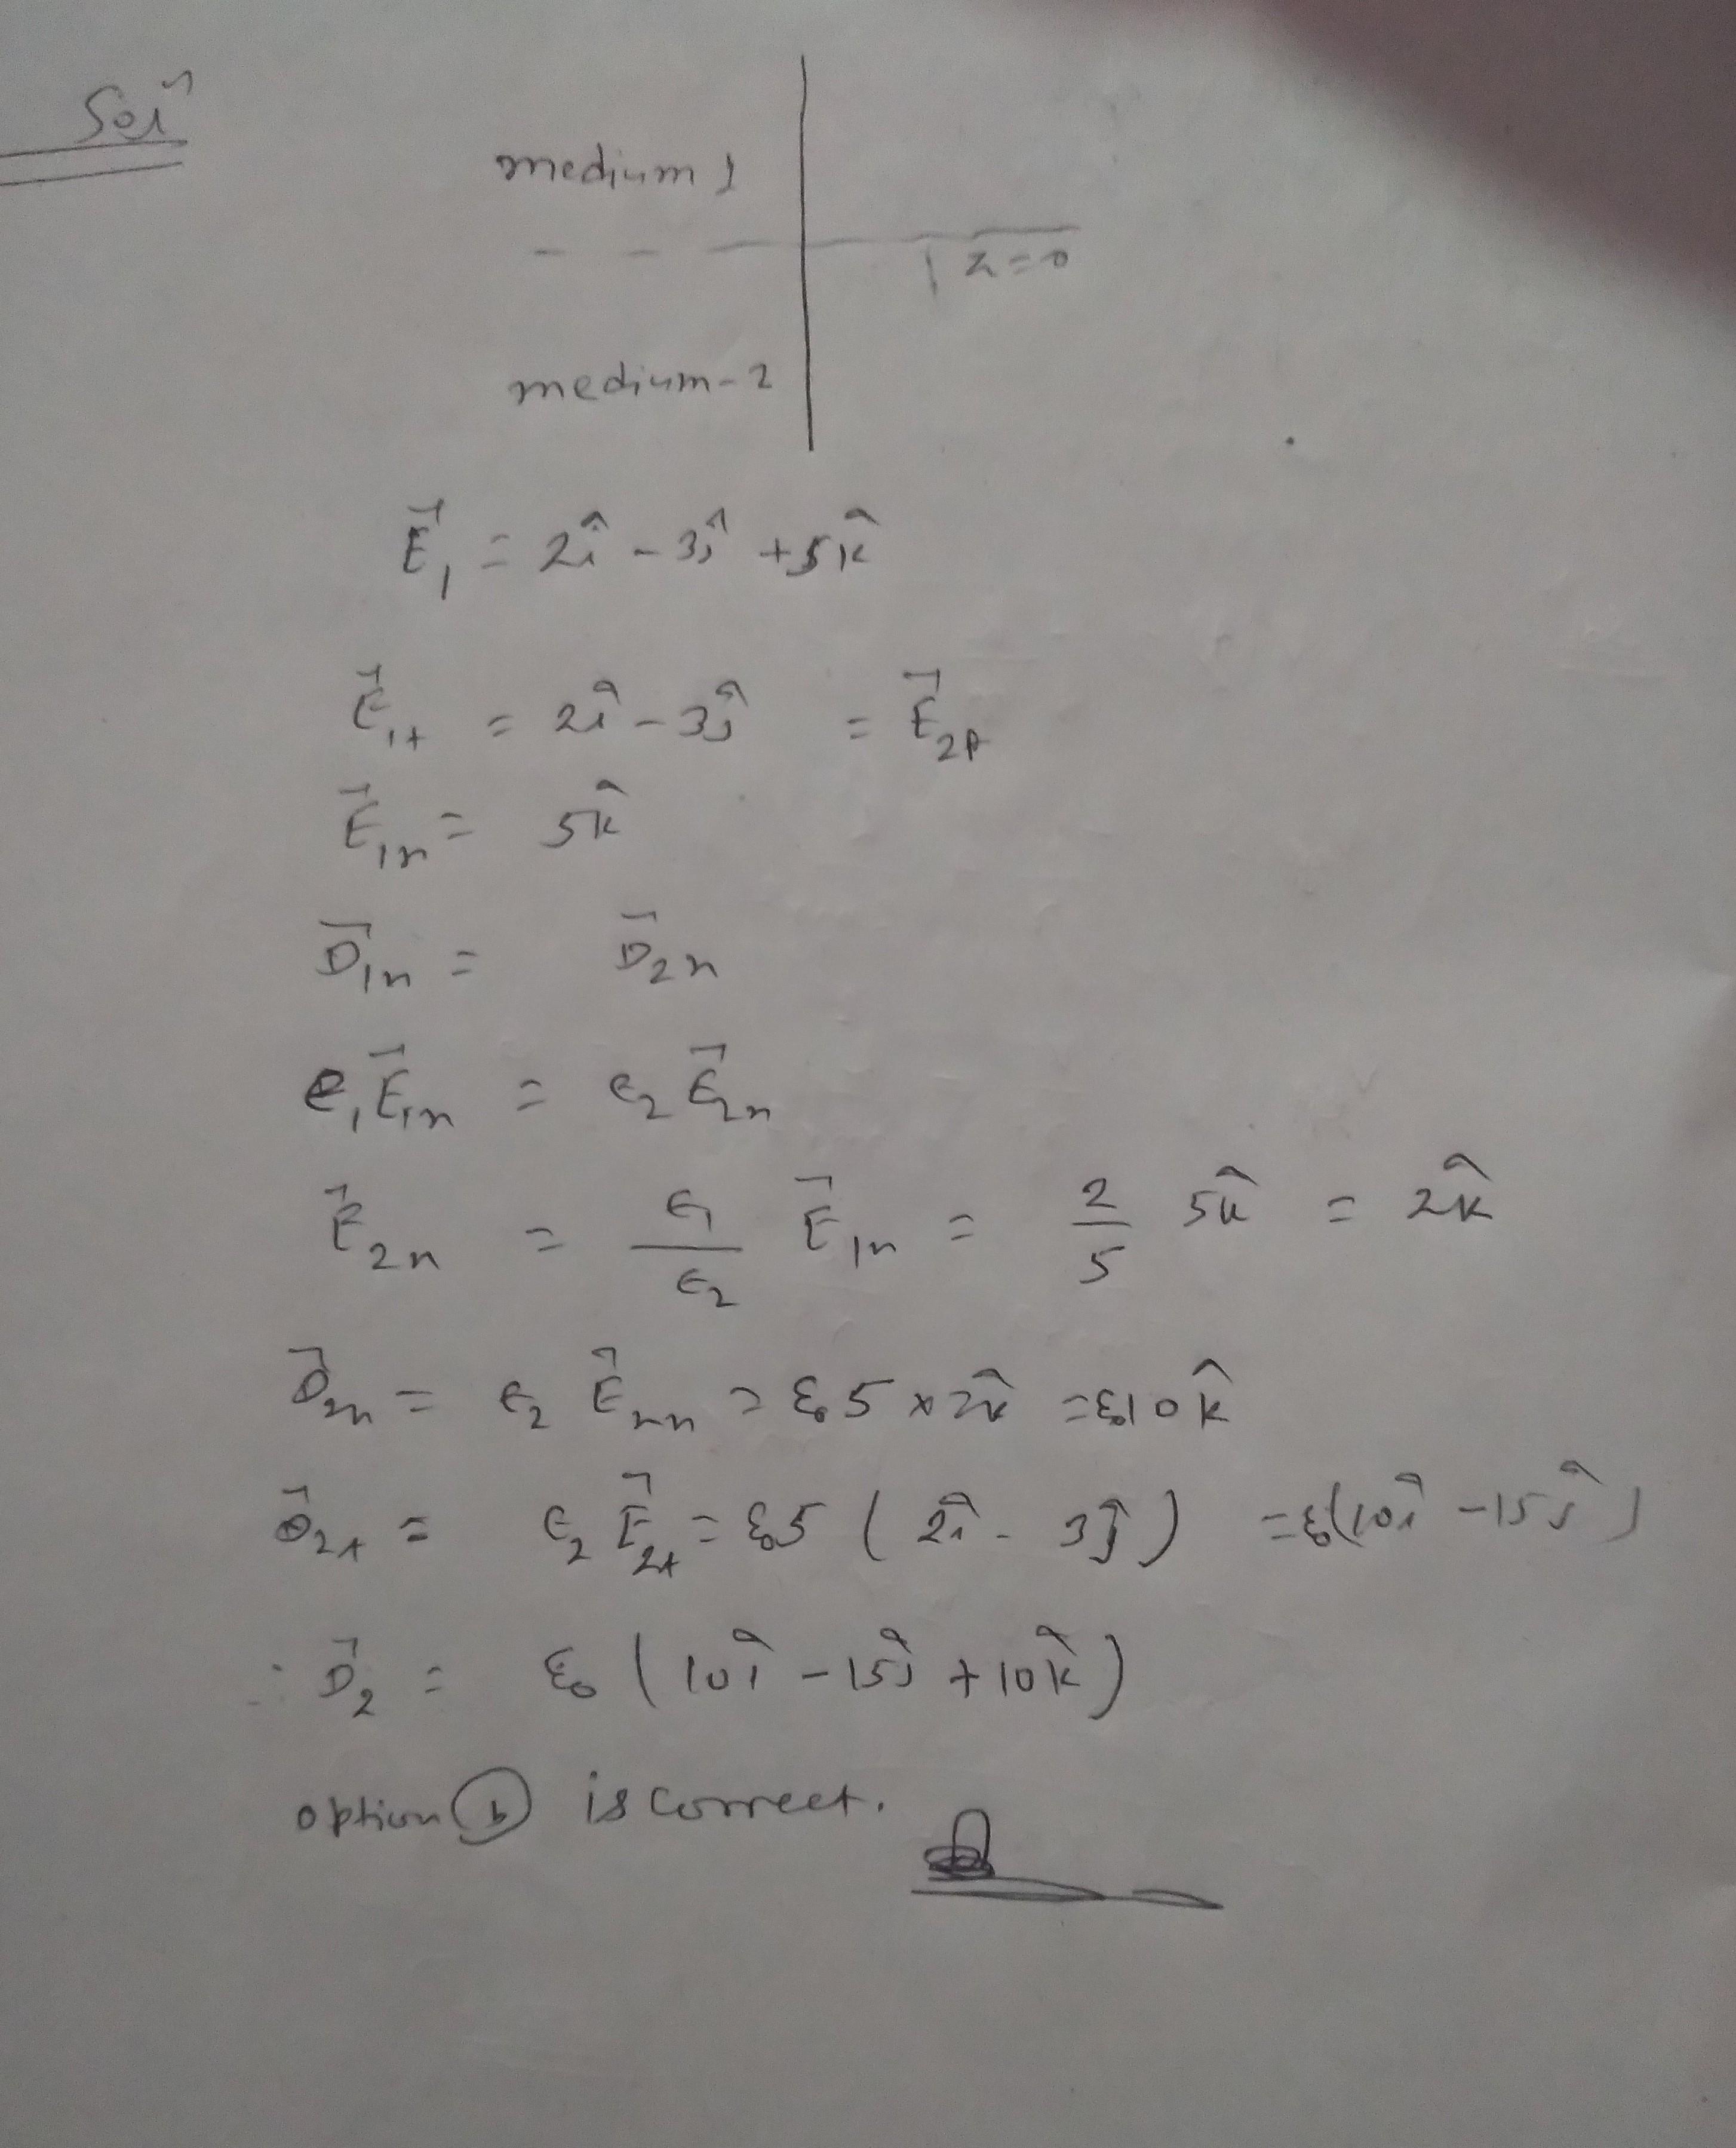 Solⁿ
medium 1
z=0
medium-2
E⃗₁ = 2î - 3ĵ + 5k̂
E⃗₁ₜ = 2î - 3ĵ = E⃗₂ₜ
E⃗₁ₙ = 5k̂
D⃗₁ₙ = D⃗₂ₙ
ϵ₁E⃗₁ₙ = ϵ₂E⃗₂ₙ
E⃗₂ₙ = ϵ₁/ϵ₂ E⃗₁ₙ = 2/5 5k̂ = 2k̂
D⃗₂ₙ = ϵ₂ E⃗₂ₙ = ε₀ 5 × 2k̂ = ε₀10k̂
D⃗₂ₜ = ϵ₂ E⃗₂ₜ = ε₀5 ( 2î - 3ĵ ) = ε₀(10î - 15ĵ)
∴ D⃗₂ = ε₀ ( 10î - 15ĵ + 10k̂ )
option (b) is correct.